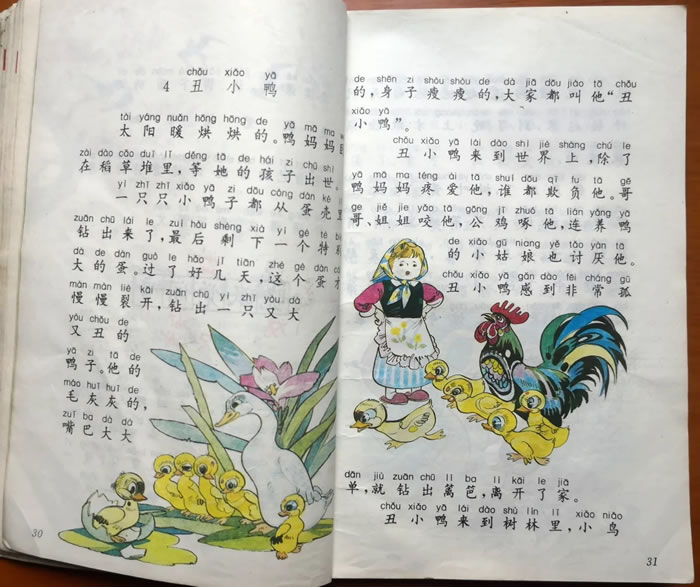 chǒu xiǎo yā
4 丑 小 鸭
tài yáng nuǎn hōng hōng de yā mā ma
太阳暖烘烘的。鸭妈妈
zài dào cǎo duī lǐ děng tā de hái zi chū shì
在稻草堆里,等她的孩子出世。
yì zhī zhī xiǎo yā zi dōu cóng dàn ké lǐ
一只只小鸭子都从蛋壳里
zuān chū lái le zuì hòu shèng xià yí gè tè
钻出来了,最后剩下一个特
dà de dàn guò le hǎo jǐ tiān zhè gè dàn
大的蛋。过了好几天,这个蛋才
màn màn liè kāi zuān chū yì zhī yòu dà
慢慢裂开,钻出一只又大
yòu chǒu de
又丑的
yā zi tā de
鸭子。他的
máo huī huī de
毛灰灰的,
zuǐ ba dà dà
嘴巴大大
30
de shēn zi shòu shòu de dà jiā dōu jiào tā chǒu
的,身子瘦瘦的,大家都叫他“丑
xiǎo yā
小鸭”。
chǒu xiǎo yā lái dào shì jiè shàng chú le
丑小鸭来到世界上,除了
yā mā ma téng ài tā shuí dōu qī fu tā gē
鸭妈妈疼爱他,谁都欺负他。哥
ge jiě jie yǎo tā gōng jī zhuó tā lián yǎng yā
哥、姐姐咬他,公鸡啄他,连养鸭
de xiǎo gū niang yě tǎo yàn tā
的小姑娘也讨厌他。
chǒu xiǎo yā gǎn dào fēi cháng gū
丑小鸭感到非常孤
dān jiù zuān chū lí ba lí kāi le jiā
单,就钻出篱笆,离开了家。
chǒu xiǎo yā lái dào shù lín lǐ xiǎo niǎo
丑小鸭来到树林里,小鸟
31